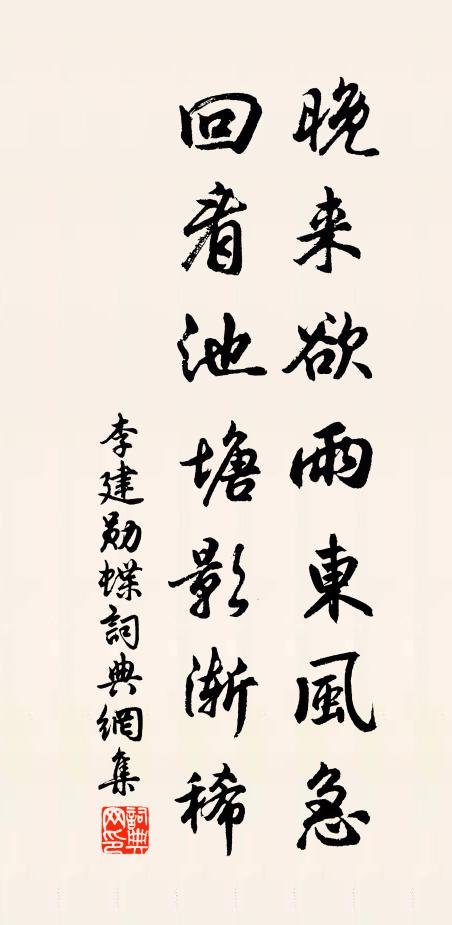 晚来欲雨東風急
回看池塘影漸稀
李建勋蝶詞典網集
詞典網印